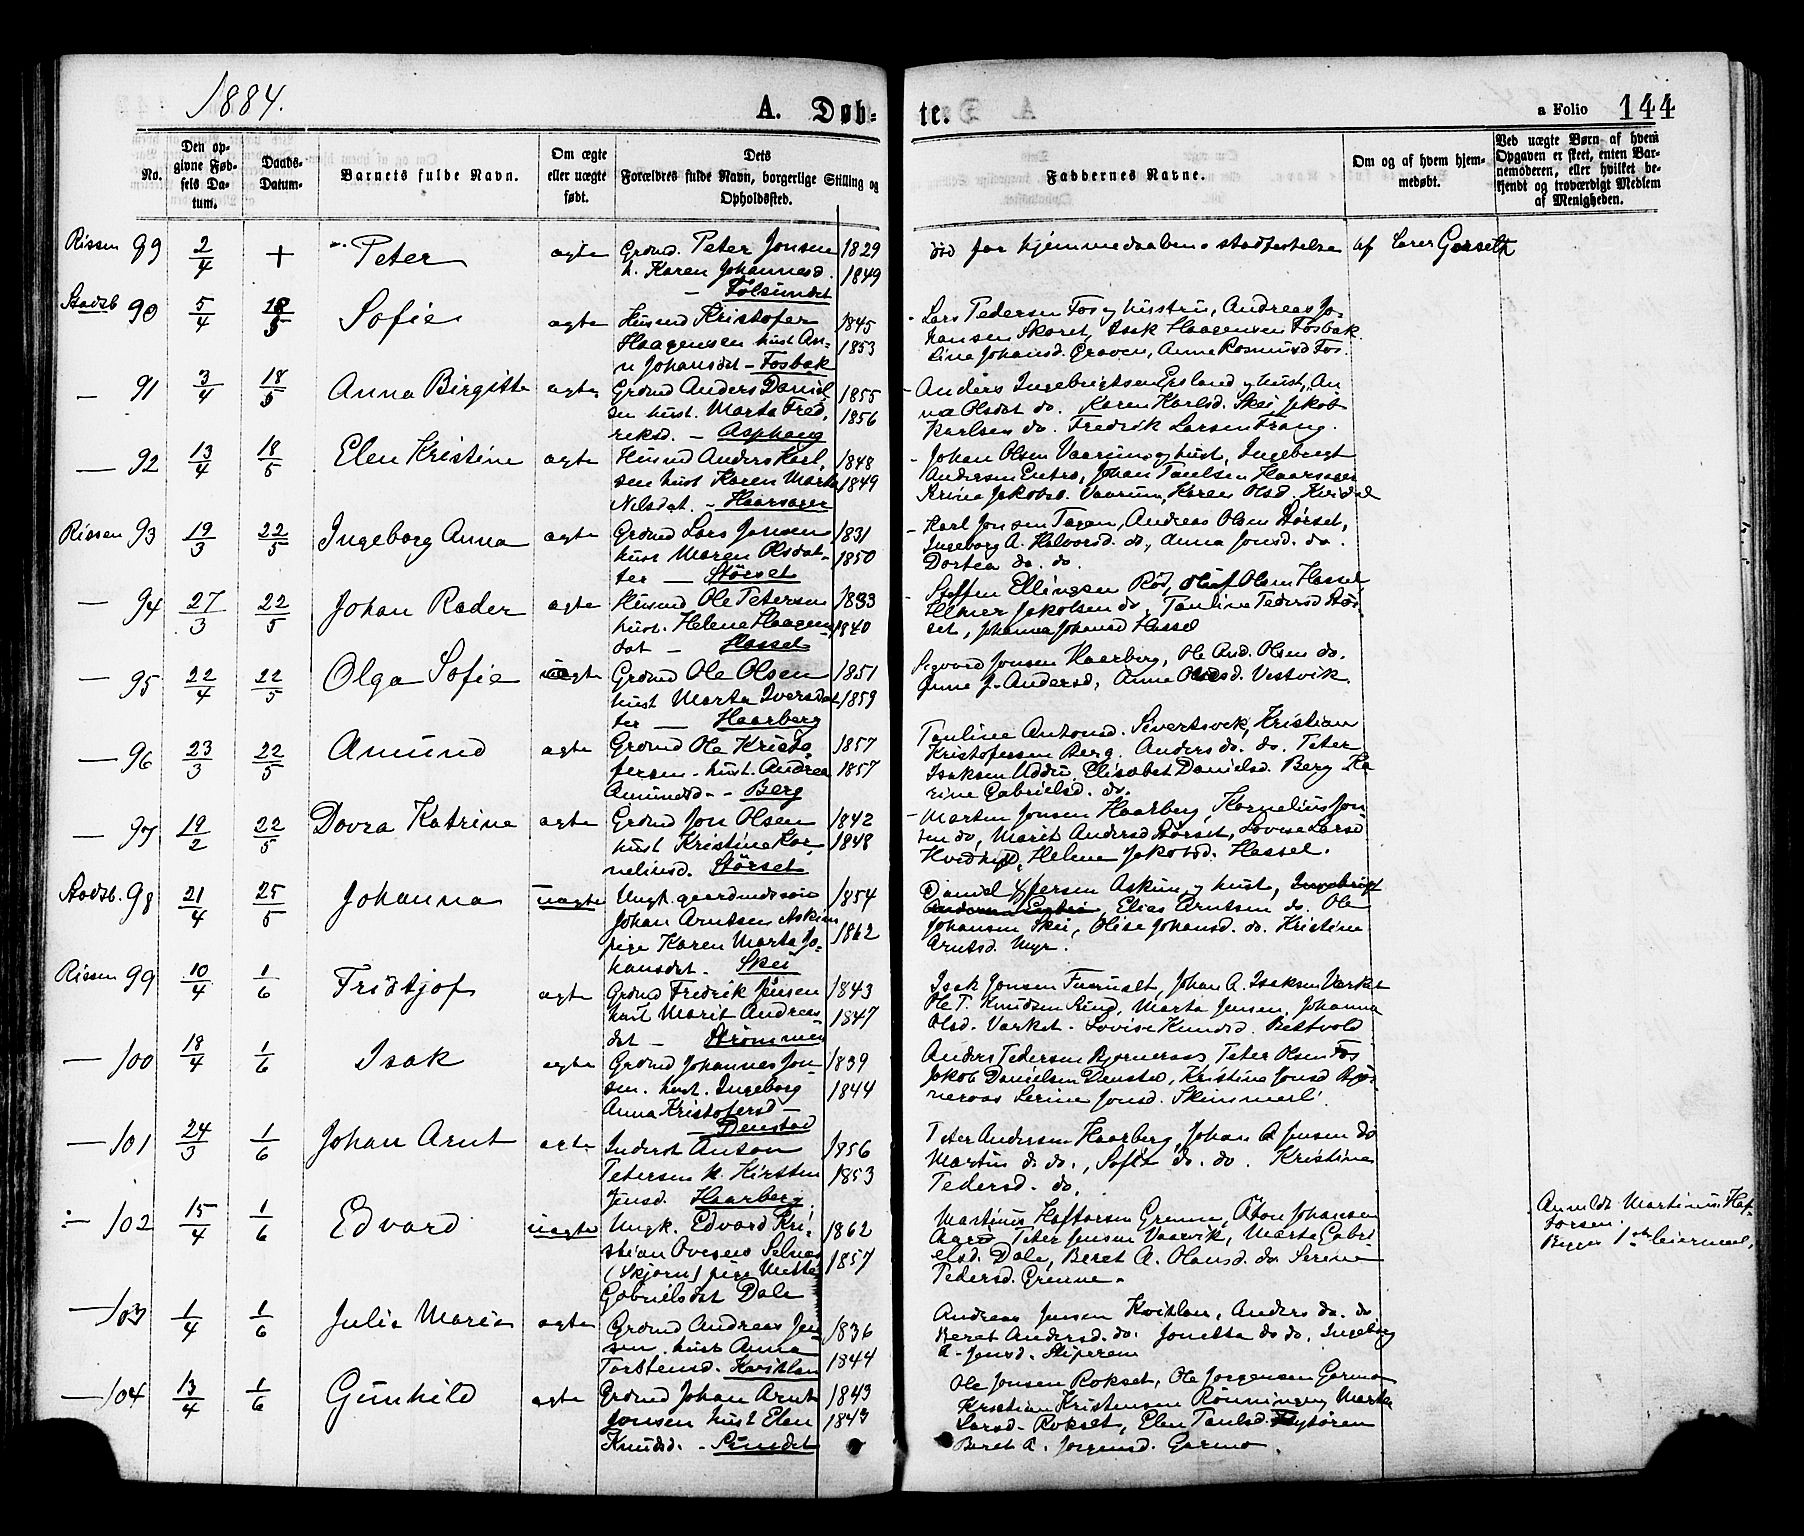 1884.
A. Døb-
te.
a Folio 144
No.
Den op-
givne Fød-
sels Da-
tum.
Daabs-
Datum.
Barnets fulde Navn.
Om ægte
eller uægte
født.
Dets
Forældres fulde Navn, borgerlige Stilling og
Opholdssted.
Faddernes Navne.
Om og af hvem hjem-
medøbt.
Ved uægte Børn af hvem
Opgaven er skeet, enten Bar-
nemoderen, eller hvilket be-
kjendt og troværdigt Medlem
af Menigheden.
Rissen 89 2/4 + Peter ægte Grdmd. Peter Jonsen 1829
h. Karen Johannesd. 1849
Følsundet
død før hjemmedaabens stadfæstelse af Lærer Gorseth
Stadsb 90 5/4 18/5 Sofie ægte Husmd Kristofer 1845
Haagensen hust An- 1853
n Johansdat - Fosbak
Lars Pedersen Fos og hustru, Andreas Jo-
hansen Skaret, Isak Haagensen Fosbak
Line Johansd. Graven, Anne Rasmusd Fos.
— 91 3/4 18/5 Anna Birgitte ægte Grdmd Anders Daniel 1855
sen hust. Marta Fred, 1856
reksd. - Asphaug
Anders Ingebrigtsen Ersland og hust, An
na Olsdat do. Karen Karlsd. Skei, Jakob
Karlsen do. Fredrik Larsen Frang.
— 92 13/4 18/5 Elen Kristine ægte Husmd Anders Karl, 1848
sen hust Karen Marta 1849
Nilsdat. - Haarsager
Johan Olsen Vaarum og hust, Ingebrigt
Andersen Entro, Johan Paulsen Haarsager
Trine Jakobsd. Vaarum, Karen Olsd. Kvidal
Rissen 93 19/3 22/5 Ingeborg Anna ægte Grdmd Lars Jonsen 1831
hust Maren Olsdat- 1850
ter — Størset
Karl Jonsen Tagen, Andreas Olsen Størset,
Ingeborg A. Halvorsd. do, Anna Jonsd. do.
Dortea do. do.
— 94 27/3 22/5 Johan Rader ægte Husmd Ole Petersen 1833
hust. Helena Haagens 1840
dat - Hassel
Steffen Ellingsen Rød, Oluf Olsen Hassel
Elmer Jakobsen do, Pauline Pedersd Stør-
set, Johanna Johansd Hassel
— 95 22/4 22/5 Olga Sofie ægte Grdmd Ole Olsen 1851
hust Marta Iversdat 1859
ter — Haarberg
Sigvard Jonsen Haarberg, Ole And. Olsen do.
Anne J. Andersd, Anne Olsd. Vestvik.
— 96 23/3 22/5 Amund ægte Grdmd Ole Kristo 1857
fersen - hust. Andrea 1857
Amundsd - - Berg
Pauline Antonsd. Sivertsvek, Kristian
Kristofersen Berg. Anders do. do. Peter
Isaksen Uddu, Elisabet Danielsd. Berg Ka
rine Gabrielsd. do.
— 97 19/2 22/5 Dovra Katrine ægte Grdmd Jon Olsen 1842
hust Kristine Kor 1848
neliusd. Størset
Morten Jonsen Haarberg, Kornelius Jon
sen do, Marit Andersd Størset, Lovise Larsd
Helene Jakobsd. Hassel.
Stadsb. 98 21/4 25/5 Johanna uægte Ungk. gaardmdssøn 1854
Johan Arntsen Askim
pige Karen Marta Jo- 1862
hansdat. Skei
Daniel Askim og hust, Ingebrigt
Elias Arntsen do. Ole
Johansen Skei, Olise Johansd. do. Kristine
Arntsd. Myr.
Rissen 99 10/4 1/6 Fridtjof ægte Grdmd Fredrik Jensen 1843
hust Marit Andreas- 1847
dat - Strømmen
Isak Jonsen Fuernalt, Johan A. Isaksen Varket
Ole T. Knudsen Rind, Marta Jensen, Johanna
Olsd. Varket. Lovise Knudsd. Reitvold
— 100 18/4 1/6 Isak ægte Grdmd Johannes Jon- 1839
sen. hust. Ingeborg 1844
Anna Kristofersd -
Denstad
Anders Pedersen Bjørneraas, Peter Olsen Fos
Jakob Danielsen Denstad, Kristine Jonsd Bjør-
neraas Serine Jonsd. Skimmeli
— 101 24/3 1/6 Johan Arnt ægte Inderst Anton 1856
Petersen h. Kirsten 1853
Jensd. Haarberg
Peter Andersen Haarberg, Johan A Jensen do
Martin do do., Sofia do. do. Kristine
Pedersd. do.
— 102 15/4 1/6 Edvard uægte Ungk. Edvard Kri- 1862
stian Ovesen Selnes
(Skjørn) pige Mette 1857
Gabrielsdat Dale
Martinus Haftorsen Grønne, Aton Johansen
Ageø Peter Jensen Vaarvik, Marta Gabri
elsd. Dale, Beret A. Olausd. do. Serine
Pedersd. Grønne.
Anmeldt Martinus Haf-
torsen.
Begges 1ste leiermaal,
— 103 1/4 1/6 Julie Marie ægte Grdmd Andreas Jen- 1836
sen. hust Anna 1844
Torstensd. Kvithlen
Andreas Jensen Kvithlen, Anders do. do
Beret Andersd. do. Jonetta do do. Ingeborg
A. Jensd. Skiperem
— 104 13/4 1/6 Gunhild ægte Grdmd Johan Arnt 1843
Jonsen hust Elen 1843
Knudsd. - Sundet
Ole Jensen Rokset, Ole Jørgensen Garmo
Kristian Kristensen Rønningen, Marta
Larsd. Rokset, Elen Paulsd. Nytøren
Beret A. Jørgensd. Garmo.